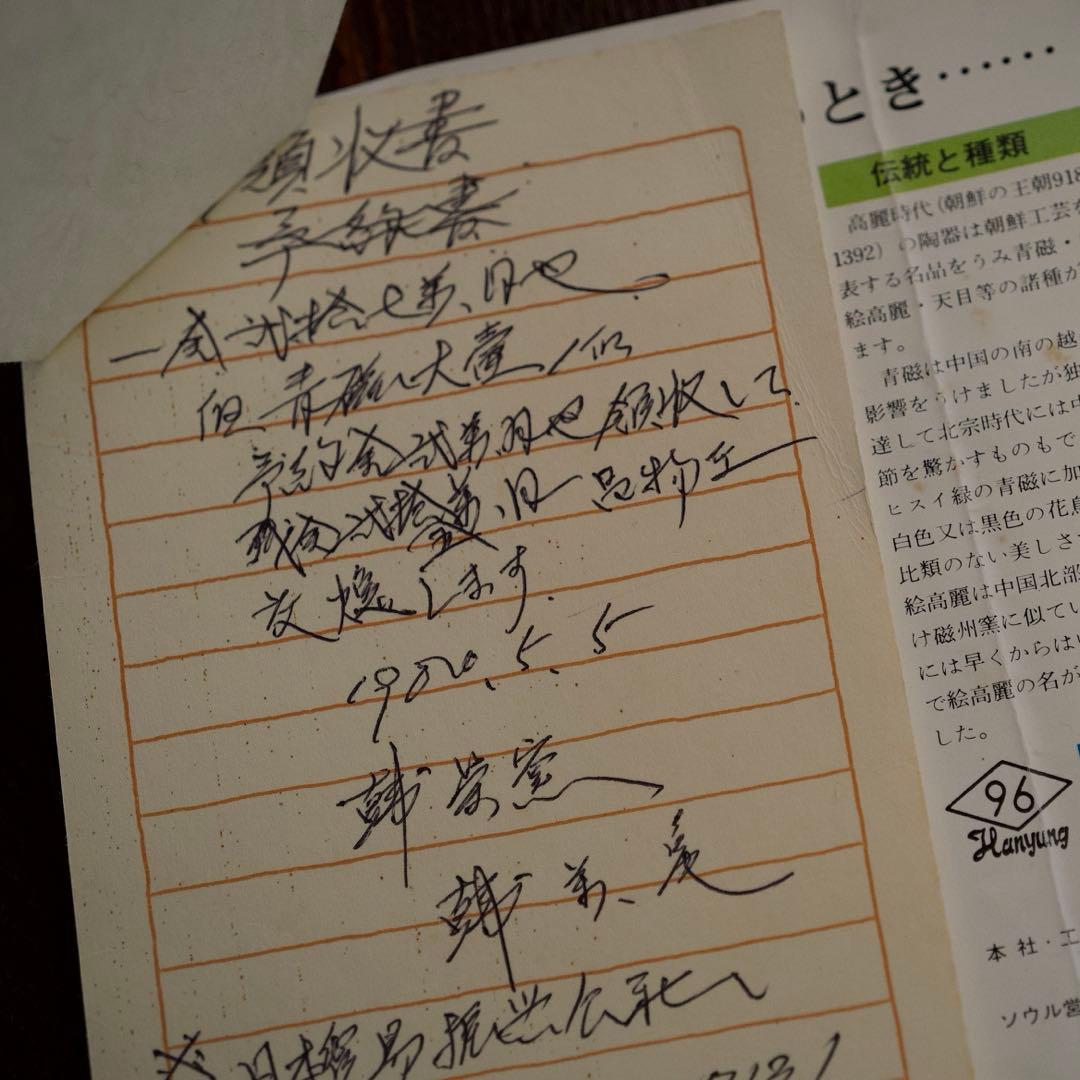 領収書
予約書
一金弐拾七萬円也
但青磁大壷
予約金弐萬円也領収して
残金弐拾
します。
1980.5.5
韓栄窯
韓
とき……
伝統と種類
高麗時代(朝鮮の王朝918
1392)の陶器は朝鮮工芸を
表する名品をうみ青磁・
絵高麗・天目等の諸種が
ます。
青磁は中国の南の越
影響をうけましたが独
達して北宗時代には中
節を驚かすものもで
ヒスイ緑の青磁に加
白色又は黒色の花鳥
比類のない美しさ
絵高麗は中国北部
け磁州窯に似てい
には早くからは
で絵高麗の名が
した。
96
Hanyung
本社・工
ソウル営